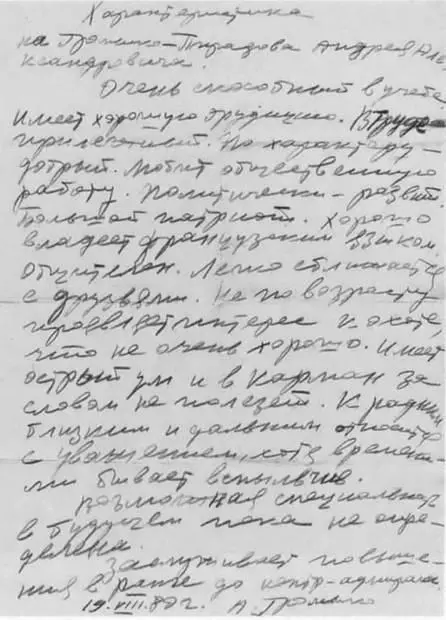 Характеристика
на Громыко-Пирадова Андрея Але
ксандровича.
Очень способный в учебе
Имеет хорошую эрудицию. В труде
прилежный. По характеру -
добрый. Любит общественную
работу. Политически - развит.
Большой патриот. Хорошо
владеет французским языком.
Общителен. Легко сближается
с друзьями. Не по возрасту
проявляет интерес к охоте,
что не очень хорошо. Имеет
острый ум и в карман за
словом не полезет. К родным
близким и дальним относится
с уважением, хотя времена-
ми бывает вспыльчив.
Возможная специальность
в будущем пока не опре-
делена.
Заслуживает повыше-
ния в ранге до контр-адмирала.
19.VIII.80г. А. Громыко